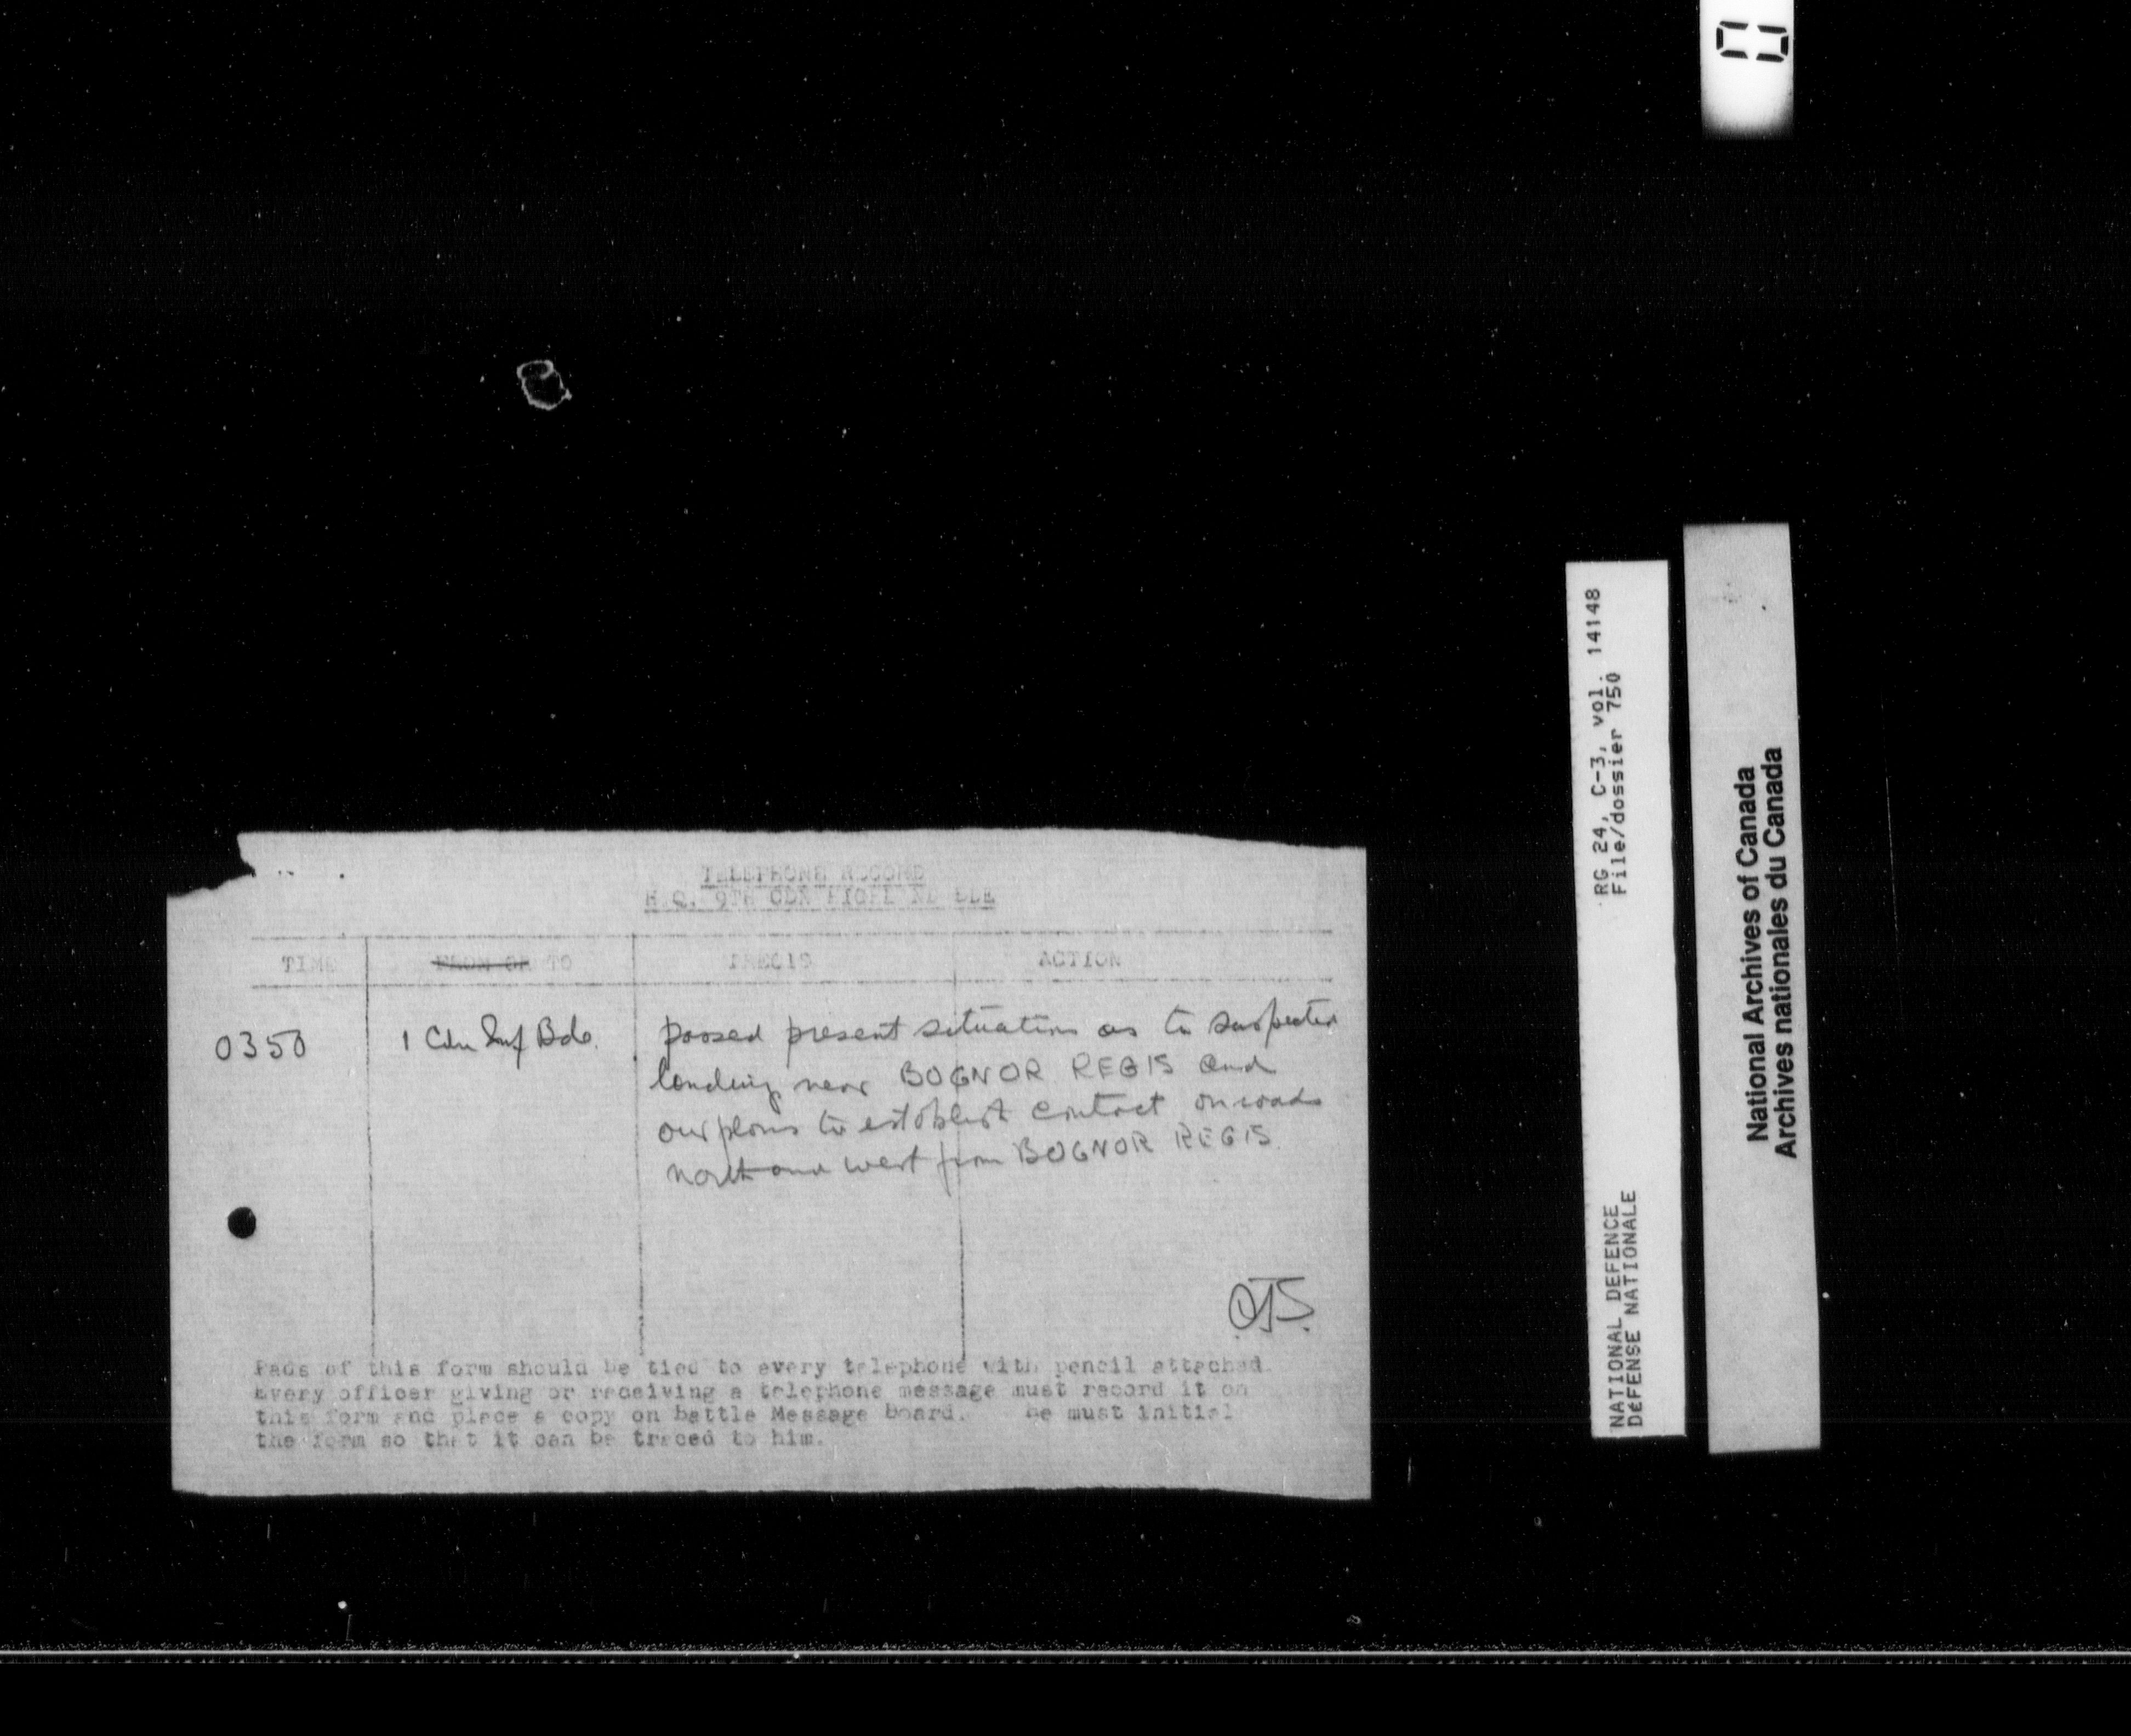 TELEPHONE RECORD
H.Q. 9TH CDN BDE
TIME FROM OR TO PRECIS ACTION
0350 1 Cdn Inf Bde. passed present situation as to suspected
landing near BOGNOR REGIS and
our plans to establish contact on roads
north and west from BOGNOR REGIS.
OJS.
Pads of this form should be tied to every telephone with pencil attached.
Every officer giving or receiving a telephone message must record it on
this form and place a copy on battle Message board. he must initial
the form so that it can be traced to him.
RG 24, C-3, vol. 14148
File/dossier 750
NATIONAL DEFENCE
DÉFENSE NATIONALE
National Archives of Canada
Archives nationales du Canada